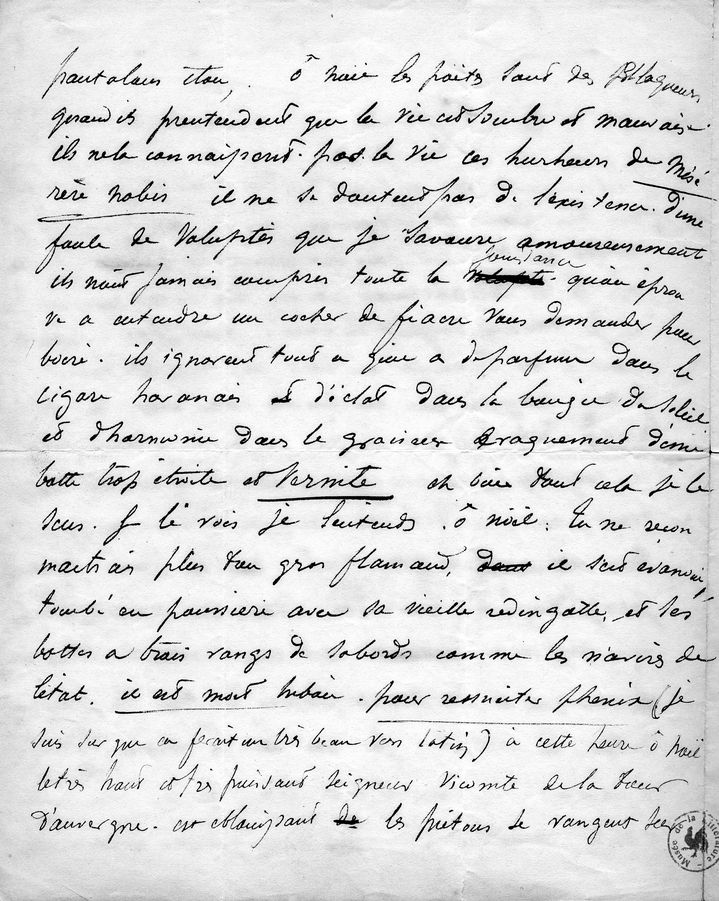 pantalons itou, ô Noël les poites sont des
quand ils preutendent que la vie est sombre et mauvaise.
ils ne la connaissent. pas. la vie ces hurheurs de misé
réré nobis il ne se doutent pas de l'existence. d'une
foule de Voluptés que je savoure amoureusement
ils n'ont jamais compris toute la jouissance qu'on éprou
ve a entendre un cocher de fiacre vous demander pour
boire. ils ignorent tout ce qu'on a de parfum dans le
cigare havanais et d'éclat dans la bougie du soleil
et d'harmonie dans le craquement d'une
botte trop étroite et Vernite eh bien tout cela je le
sens. Je le vois je l'entends. ô Noël. tu ne recon
naitrais plus ton gros flamand, il s'est évanoui,
tombé en poussiere avec sa vieille redingotte, et ses
bottes a trois rangs de sabords comme les navires de
l'état. il est mort pour ressusciter phenix (je
suis sur que ca ferait un très beau vers latin) à cette heure ô noël
le très haut et très puissant seigneur Vicomte de la tour
D'auvergne. est eblouissant les piétons se rangent sur
Musée de la Littérature